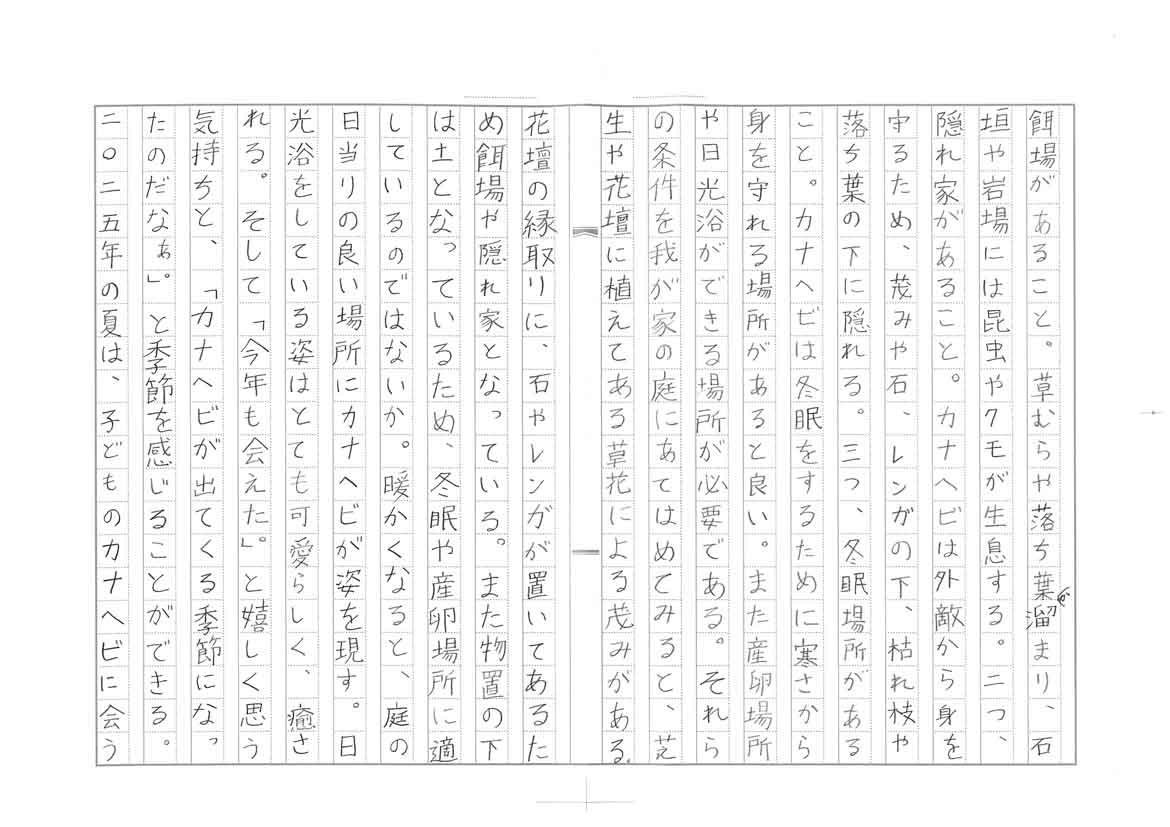 餌場があること。草むらや落ち葉溜まり、石
垣や岩場には昆虫やクモが生息する。二つ、
隠れ家があること。カナヘビは外敵から身を
守るため、茂みや石、レンガの下、枯れ枝や
落ち葉の下に隠れる。三つ、冬眠場所がある
こと。カナヘビは冬眠をするために寒さから
身を守れる場所があると良い。また産卵場所
や日光浴ができる場所が必要である。それら
の条件を我が家の庭にあてはめてみると、芝
生や花壇に植えてある草花による茂みがある。
花壇の縁取りに、石やレンガが置いてあるた
め餌場や隠れ家となっている。また物置の下
は土となっているため、冬眠や産卵場所に適
しているのではないか。暖かくなると、庭の
日当りの良い場所にカナヘビが姿を現す。日
光浴をしている姿はとても可愛らしく、癒さ
れる。そして「今年も会えた」。と嬉しく思う
気持ちと、「カナヘビが出てくる季節になっ
たのだなぁ」。と季節を感じることができる。
二〇二五年の夏は、子どものカナヘビに会う